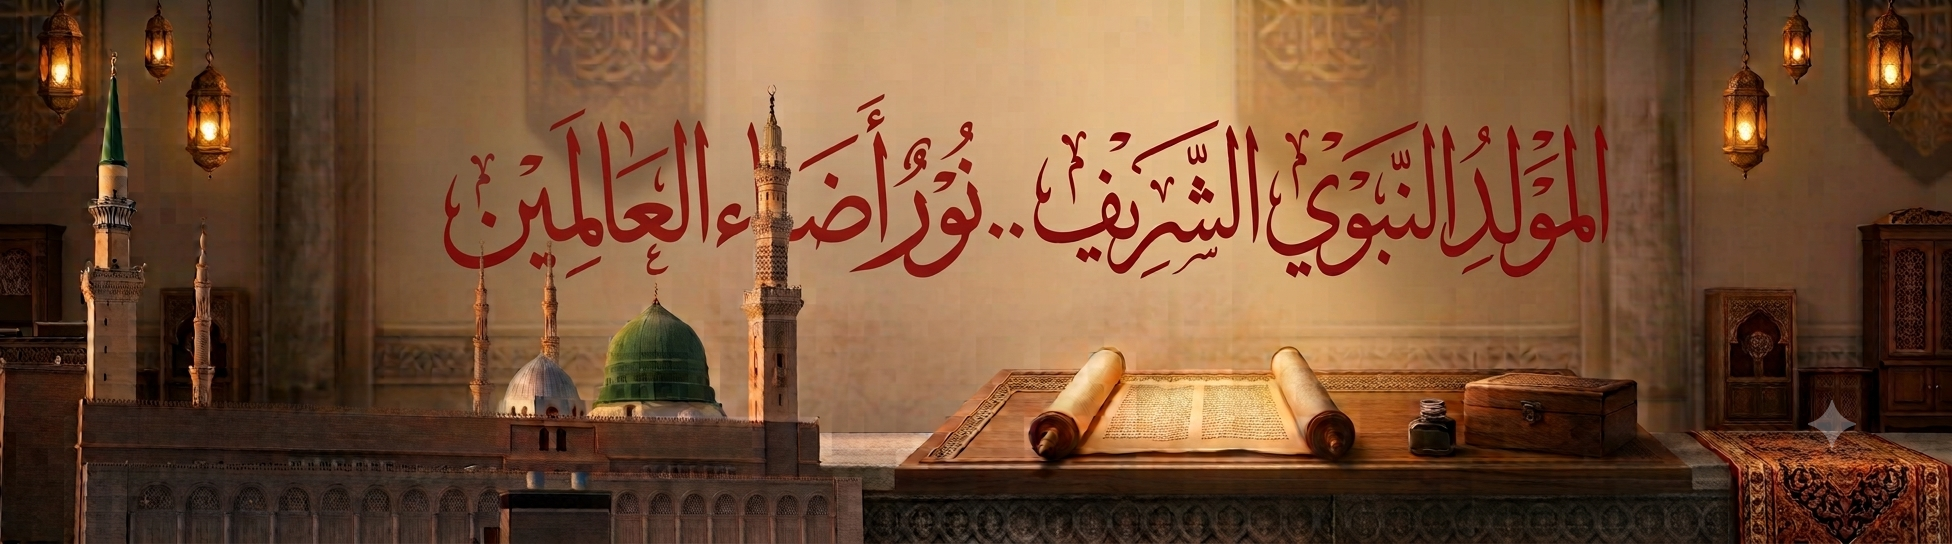 المَوْلِدُ النَّبَوِيْ الشَّرِيْف.. نُوْرٌ أَضَاء العَالَمِيْن